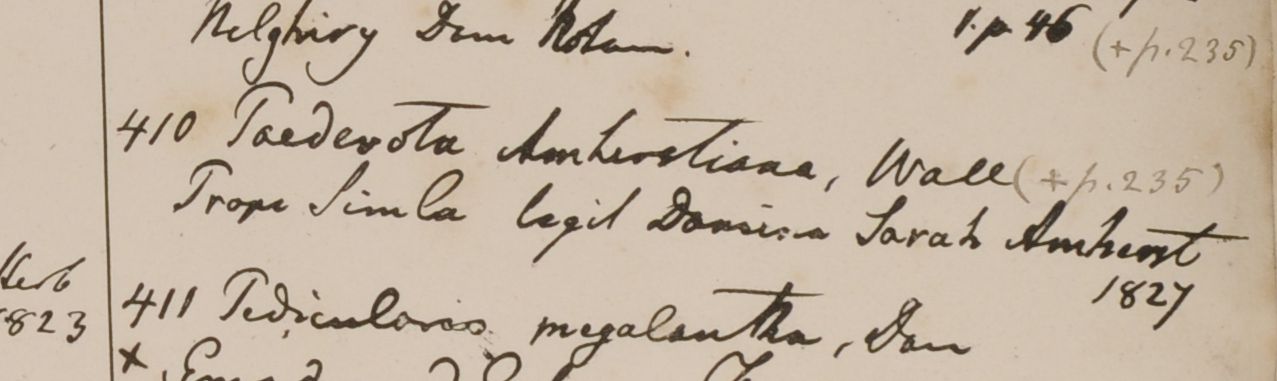 Nelghiry Dom Notom. 1. p. 46 (+ p. 235)
410 Paederota Amherstiana, Wall (+ p. 235)
Prope Simla legit Domina Sarah Amherst
1827
Herb
1823
411 Pedicularis megalantha, Don
x